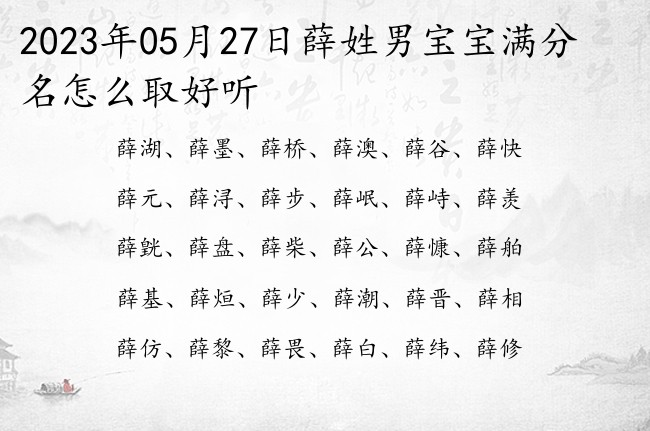 2023年05月27日薛姓男宝宝满分
名怎么取好听
薛湖、薛墨、薛桥、薛澳、薛谷、薛快
薛元、薛浔、薛步、薛岷、薛峙、薛羡
薛毯、薛盘、薛柴、薛公、薛慷、薛舶
薛基、薛烜、薛少、薛潮、薛晋、薛相
薛仿、薛黎、薛畏、薛白、薛纬、薛修